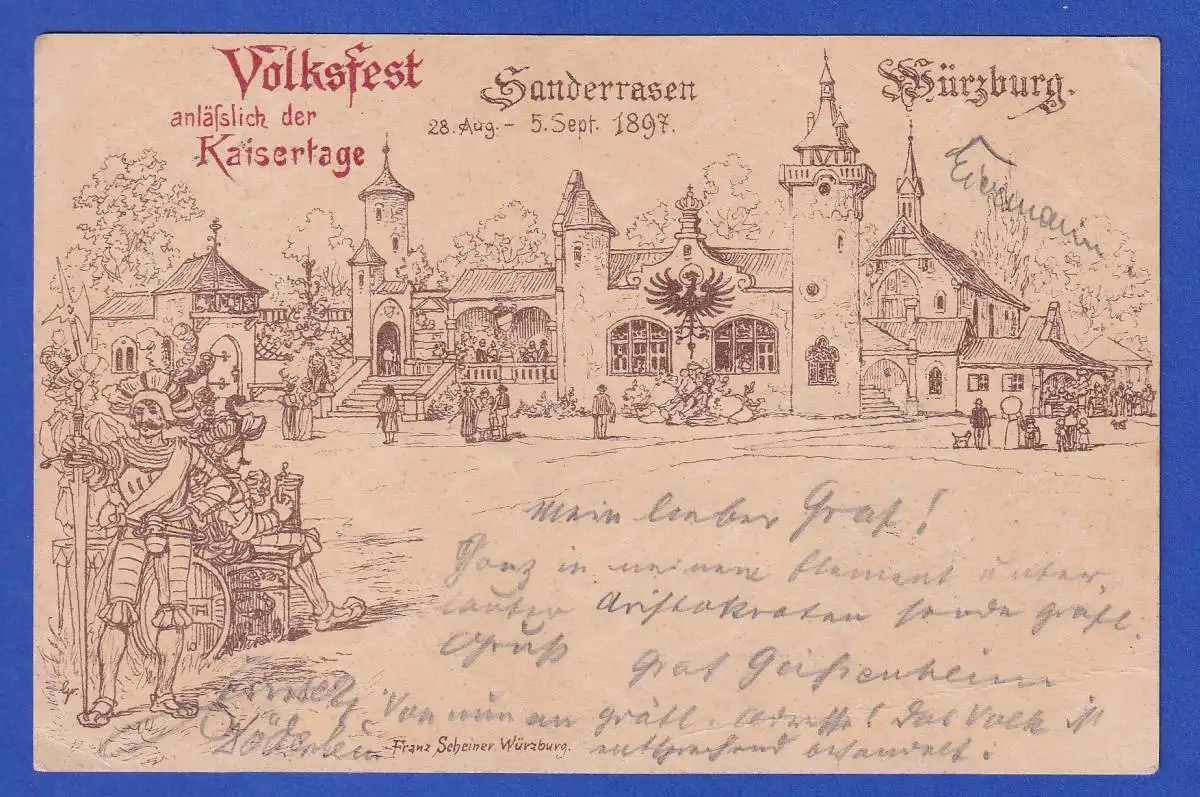 Volksfest
anläſslich der
Kaisertage
Sanderrasen
28. Aug. – 5. Sept. 1897.
Würzburg.
Eiermann
Mein lieber Graf!
Ganz in meinem Element unter
lauter Aristokraten sende gräfl.
Gruß
Graf
Von nun an gräfl. Adresse! Das Volk ist
entsprechend behandelt.
Franz Scheiner Würzburg.